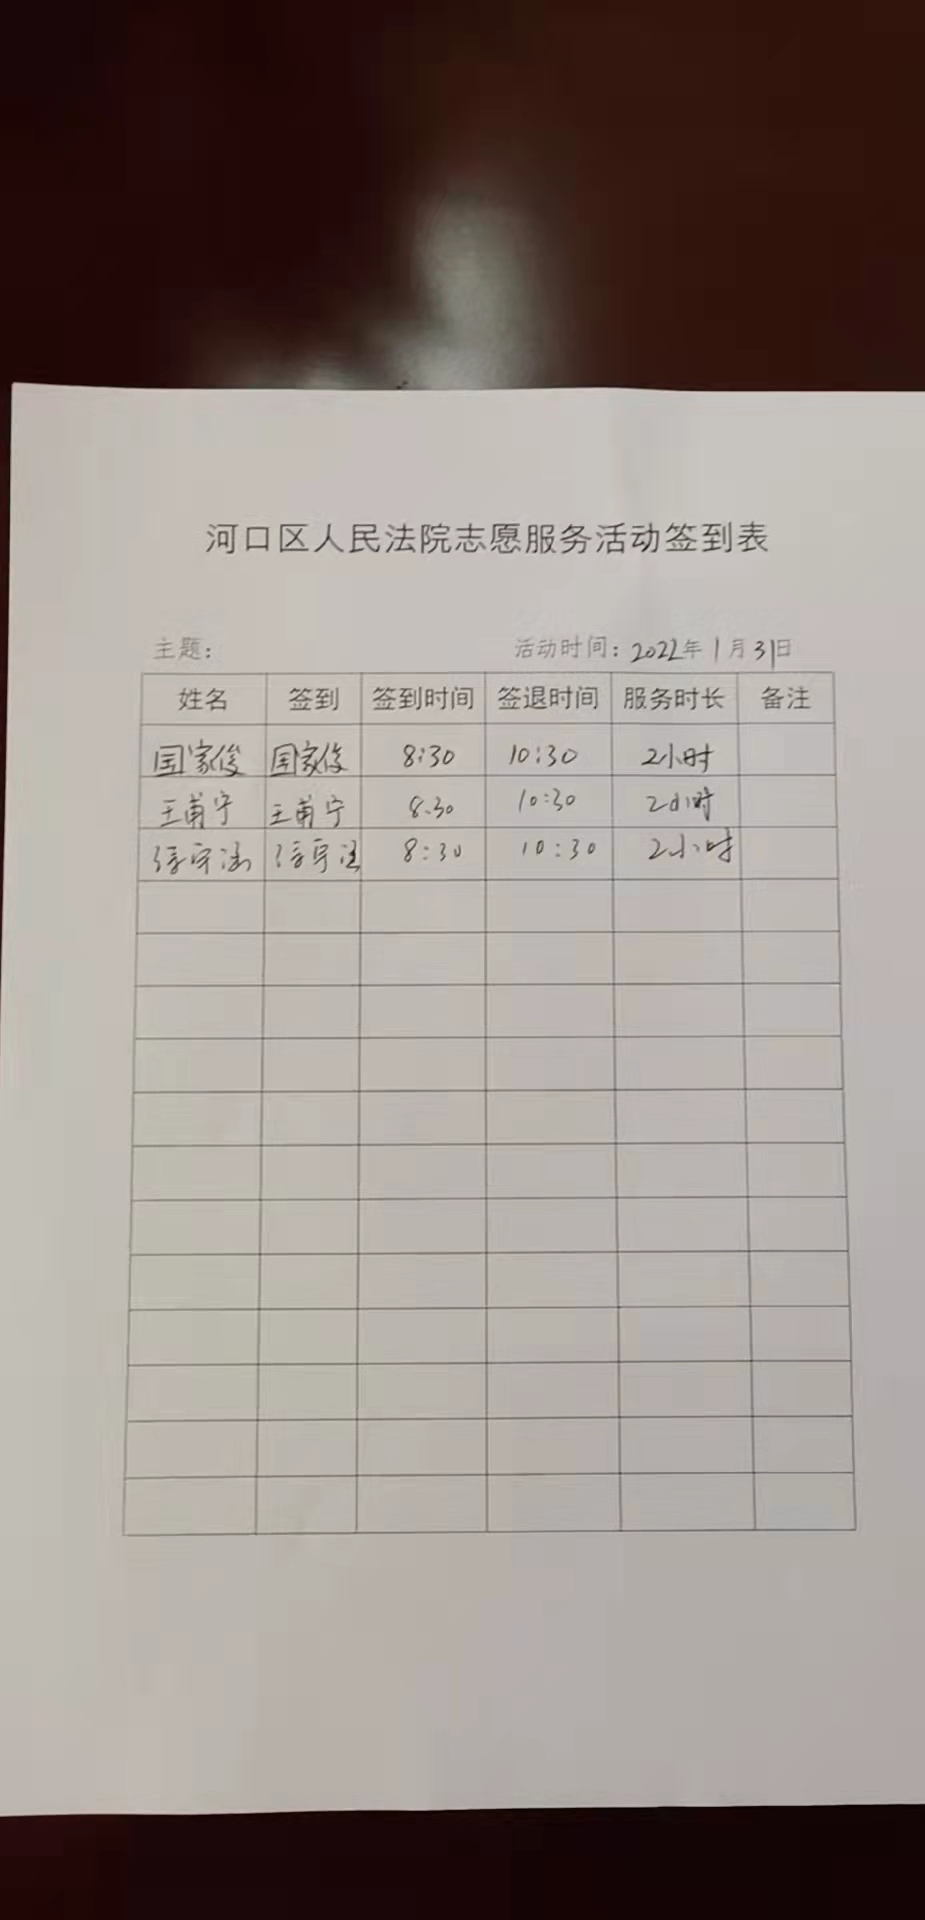 河口区人民法院志愿服务活动签到表
主题: 活动时间: 2022年1月31日
姓名 签到 签到时间 签退时间 服务时长 备注
国家俊 国家俊 8:30 10:30 2小时
王甫宁 王甫宁 8:30 10:30 2小时
8:30 10:30 2小时